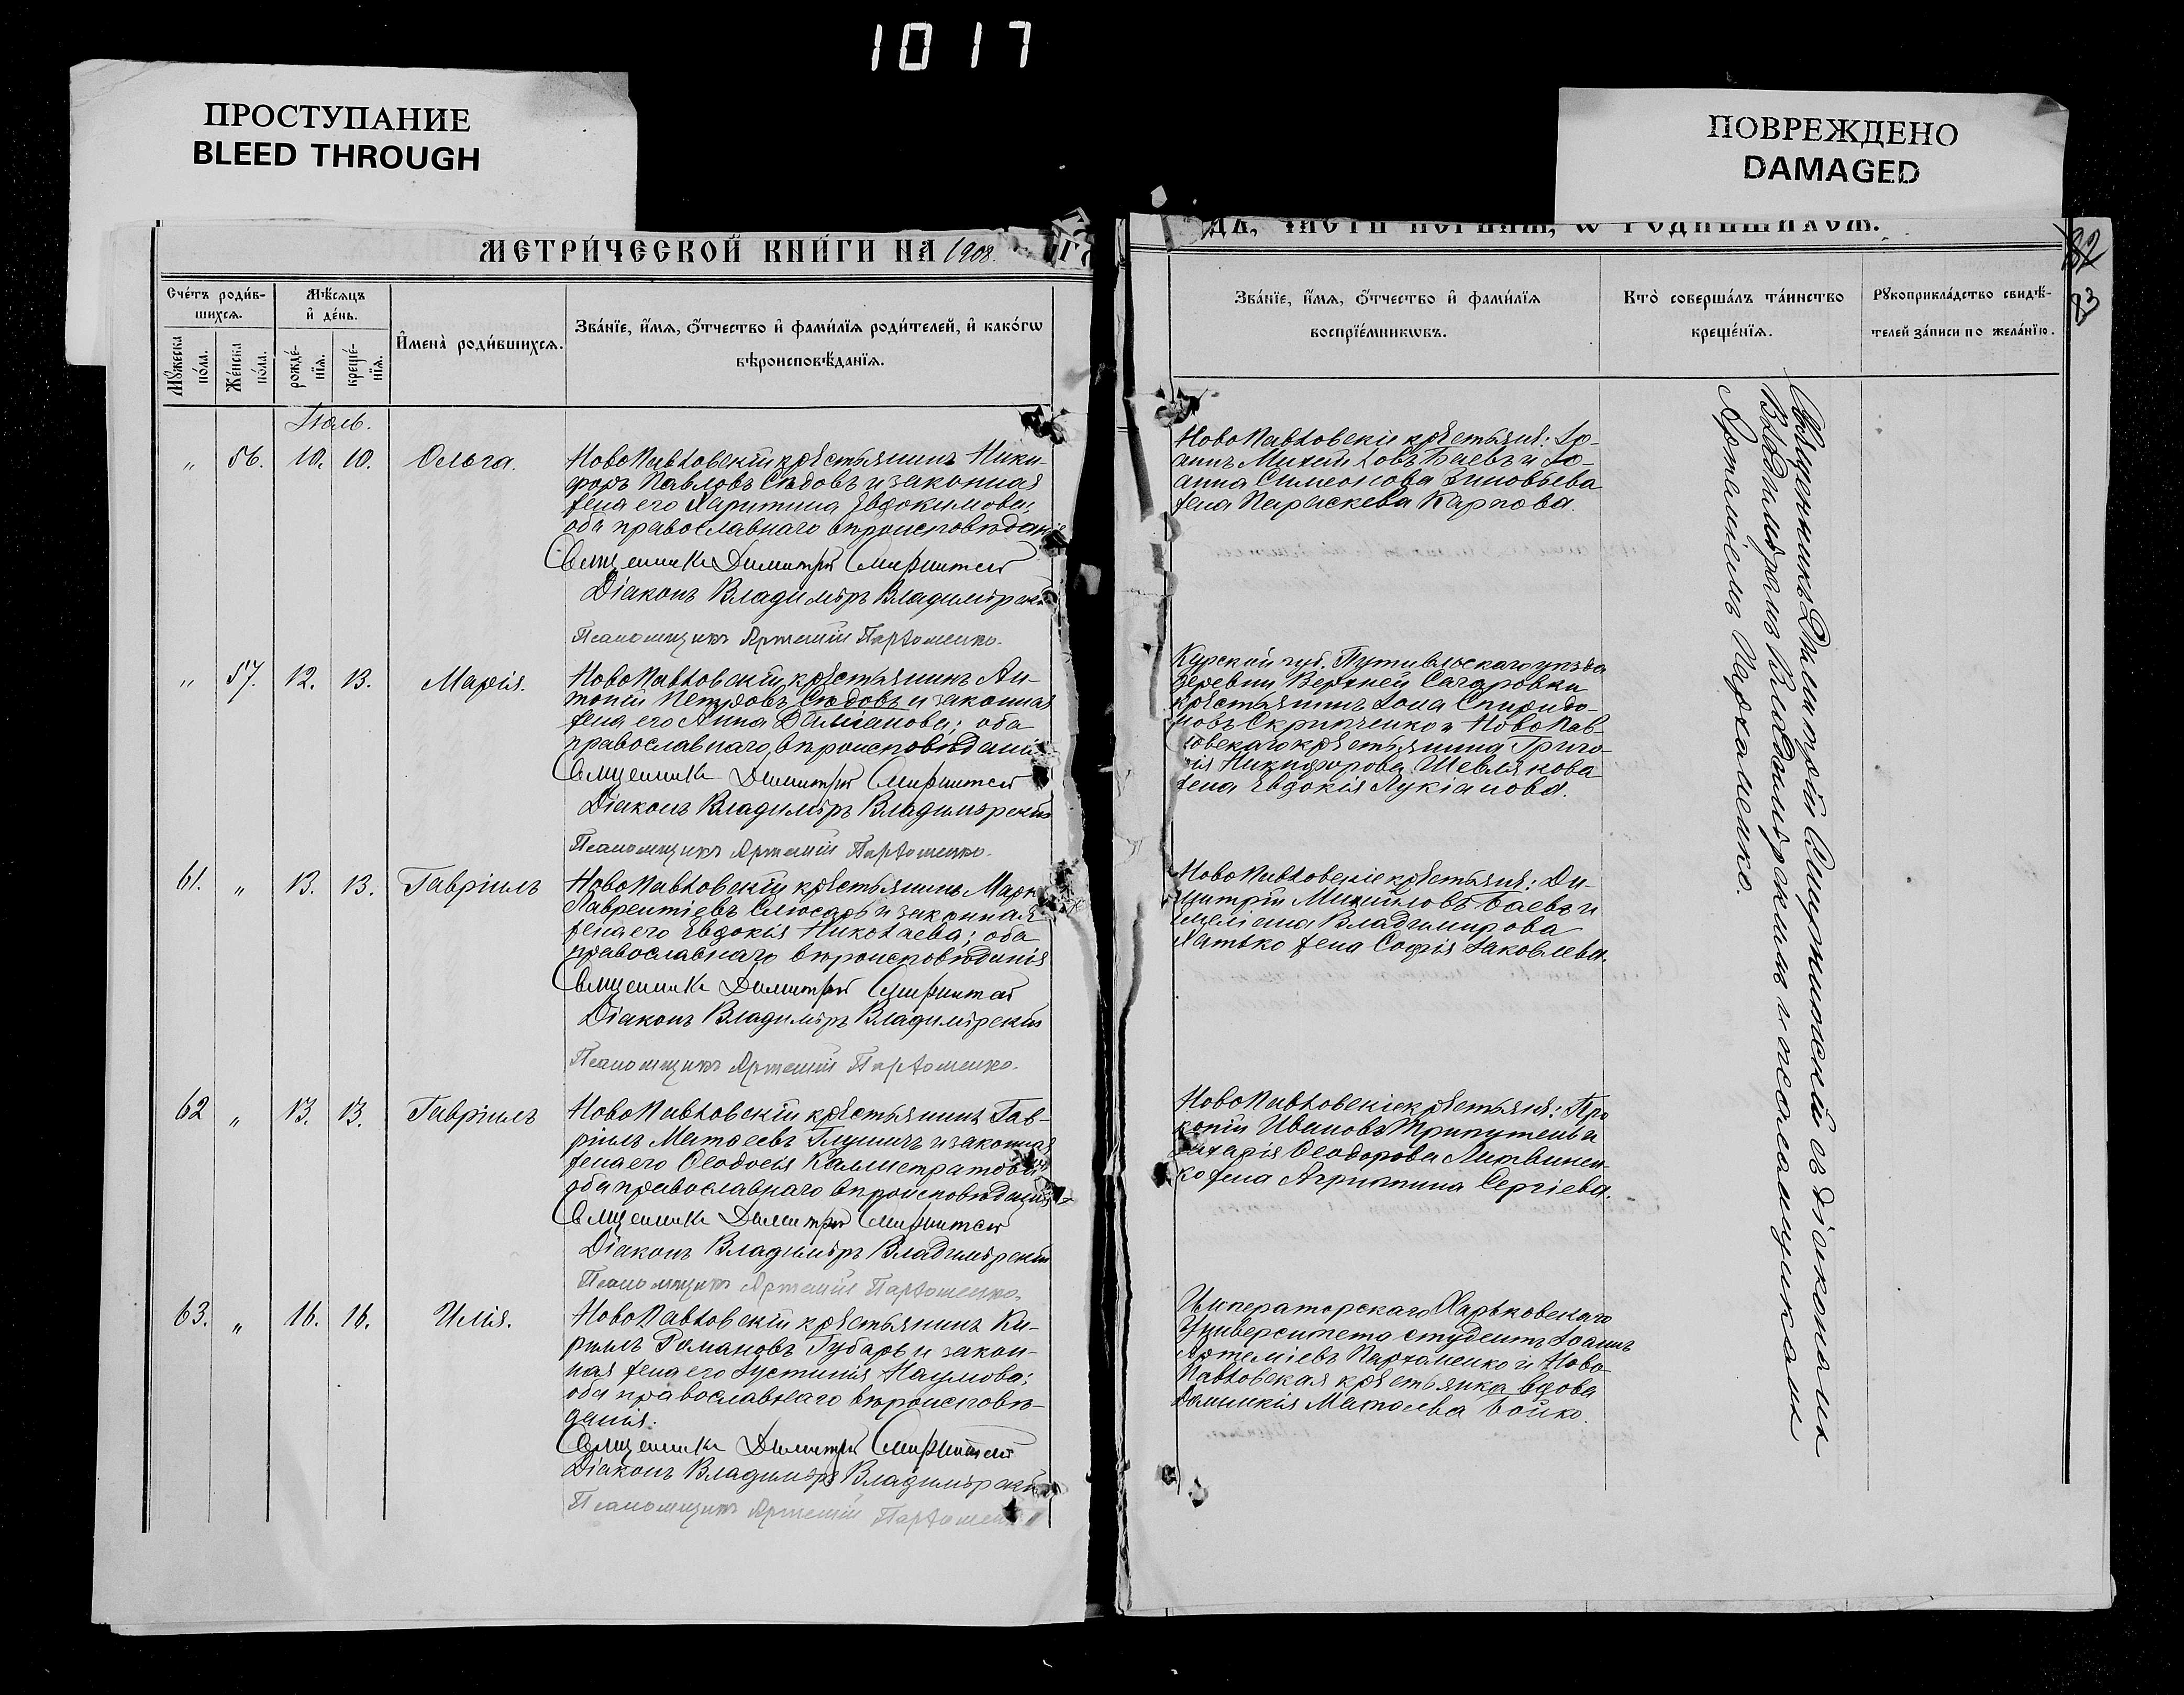 1017
ПРОСТУПАНИЕ
BLEED THROUGH
ПОВРЕЖДЕНО
DAMAGED
МЕТРИ́ЧЕСКОЙ КНИ́ГИ НА 1908
82
83
Сче́тъ роди́в-
шихсѧ.
Мѣ́сѧцъ
и҆ де́нь.
Мꙋ́жеска
по́ла.
Же́нска
по́ла.
рожде́-
нїѧ.
креще́-
нїѧ.
И҆мена̀ роди́вшихсѧ.
Зва́нїе, и҆́мѧ, ѻ҆́тчество и҆ фами́лїѧ роди́телей, и҆ како́гѡ
вѣроисповѣ́данїѧ.
Зва́нїе, и҆́мѧ, ѻ҆́тчество и҆ фами́лїѧ
воспрїе́мникѡвъ.
Кто̀ соверша́лъ та́инство
креще́нїѧ.
Рꙋкоприкла́дство свидѣ́-
телей за́писи по жела́нїю.
Іюль.
„ 56. 10. 10. Ольга.
НовоПавловскій крестьянинъ Ники-
форъ Павловъ Сѣдовъ и законная
жена его Харитина Евдокимова;
оба православнаго вѣроисповѣданія
Священникъ Димитрій
Діаконъ Владиміръ Владимірскій
Псаломщикъ Артемій Пархоменко.
НовоПавловскіе крестьяне: Іо-
аннъ Михайловъ Баевъ и Іо-
анна Симеонова Зиновьева
жена Параскева Карпова.
„ 57. 12. 13. Марія.
НовоПавловскій крестьянинъ Ан-
тоній Петровъ Сѣдовъ и законная
жена его Анна Даміанова; оба
православнаго вѣроисповѣданія
Священникъ Димитрій
Діаконъ Владиміръ Владимірскій
Псаломщикъ Артемій Пархоменко.
Курской губ. Путивльскаго уѣзда
деревни Верхней Сагаровки
крестьянинъ Іона Спиридо-
новъ Скрипченко и НовоПав-
ловскаго крестьянина Григо-
рія Никифорова Шевлякова
жена Евдокія Лукіанова.
61. „ 13. 13. Гавріилъ
НовоПавловскій крестьянинъ Маркъ
Лаврентіевъ Слюсарь и законная
жена его Евдокія Николаева; оба
православнаго вѣроисповѣданія
Священникъ Димитрій
Діаконъ Владиміръ Владимірскій
Псаломщикъ Артемій Пархоменко.
НовоПавловскіе крестьяне: Ди-
митрій Михайловъ Баевъ и
Владимирова
Хатько жена Софія Іаковлева.
62 „ 13. 13. Гавріилъ
НовоПавловскій крестьянинъ Гав-
ріилъ Матѳеевъ Глушичъ и законная
жена его Ѳеодосія Каллистратова
оба православнаго вѣроисповѣданія
Священникъ Димитрій
Діаконъ Владиміръ Владимірскій
Псаломщикъ Артемій Пархоменко.
НовоПавловскіе крестьяне: Про
копій Ивановъ Трипутень и
Захарія Ѳеодорова Литвинен-
ко жена Агриппина Сергіева.
63. „ 16. 16. Илія.
НовоПавловскій крестьянинъ Ки-
риллъ Романовъ Губарь и закон-
ная жена его Іустинія Наумова;
оба православнаго вѣроисповѣ-
данія.
Священникъ Димитрій
Діаконъ Владиміръ Владимірскій
Псаломщикъ Артемій Пархоменко
Императорскаго Харьковскаго
Университета студентъ Іоаннъ
Артеміевъ Пархоменко и Ново-
Павловская крестьянка вдова
Домникія Матѳеева Бойко.
Священникъ Димитрій съ діакономъ
Владиміромъ Владимірскимъ и псаломщикомъ
Артеміемъ Пархоменко